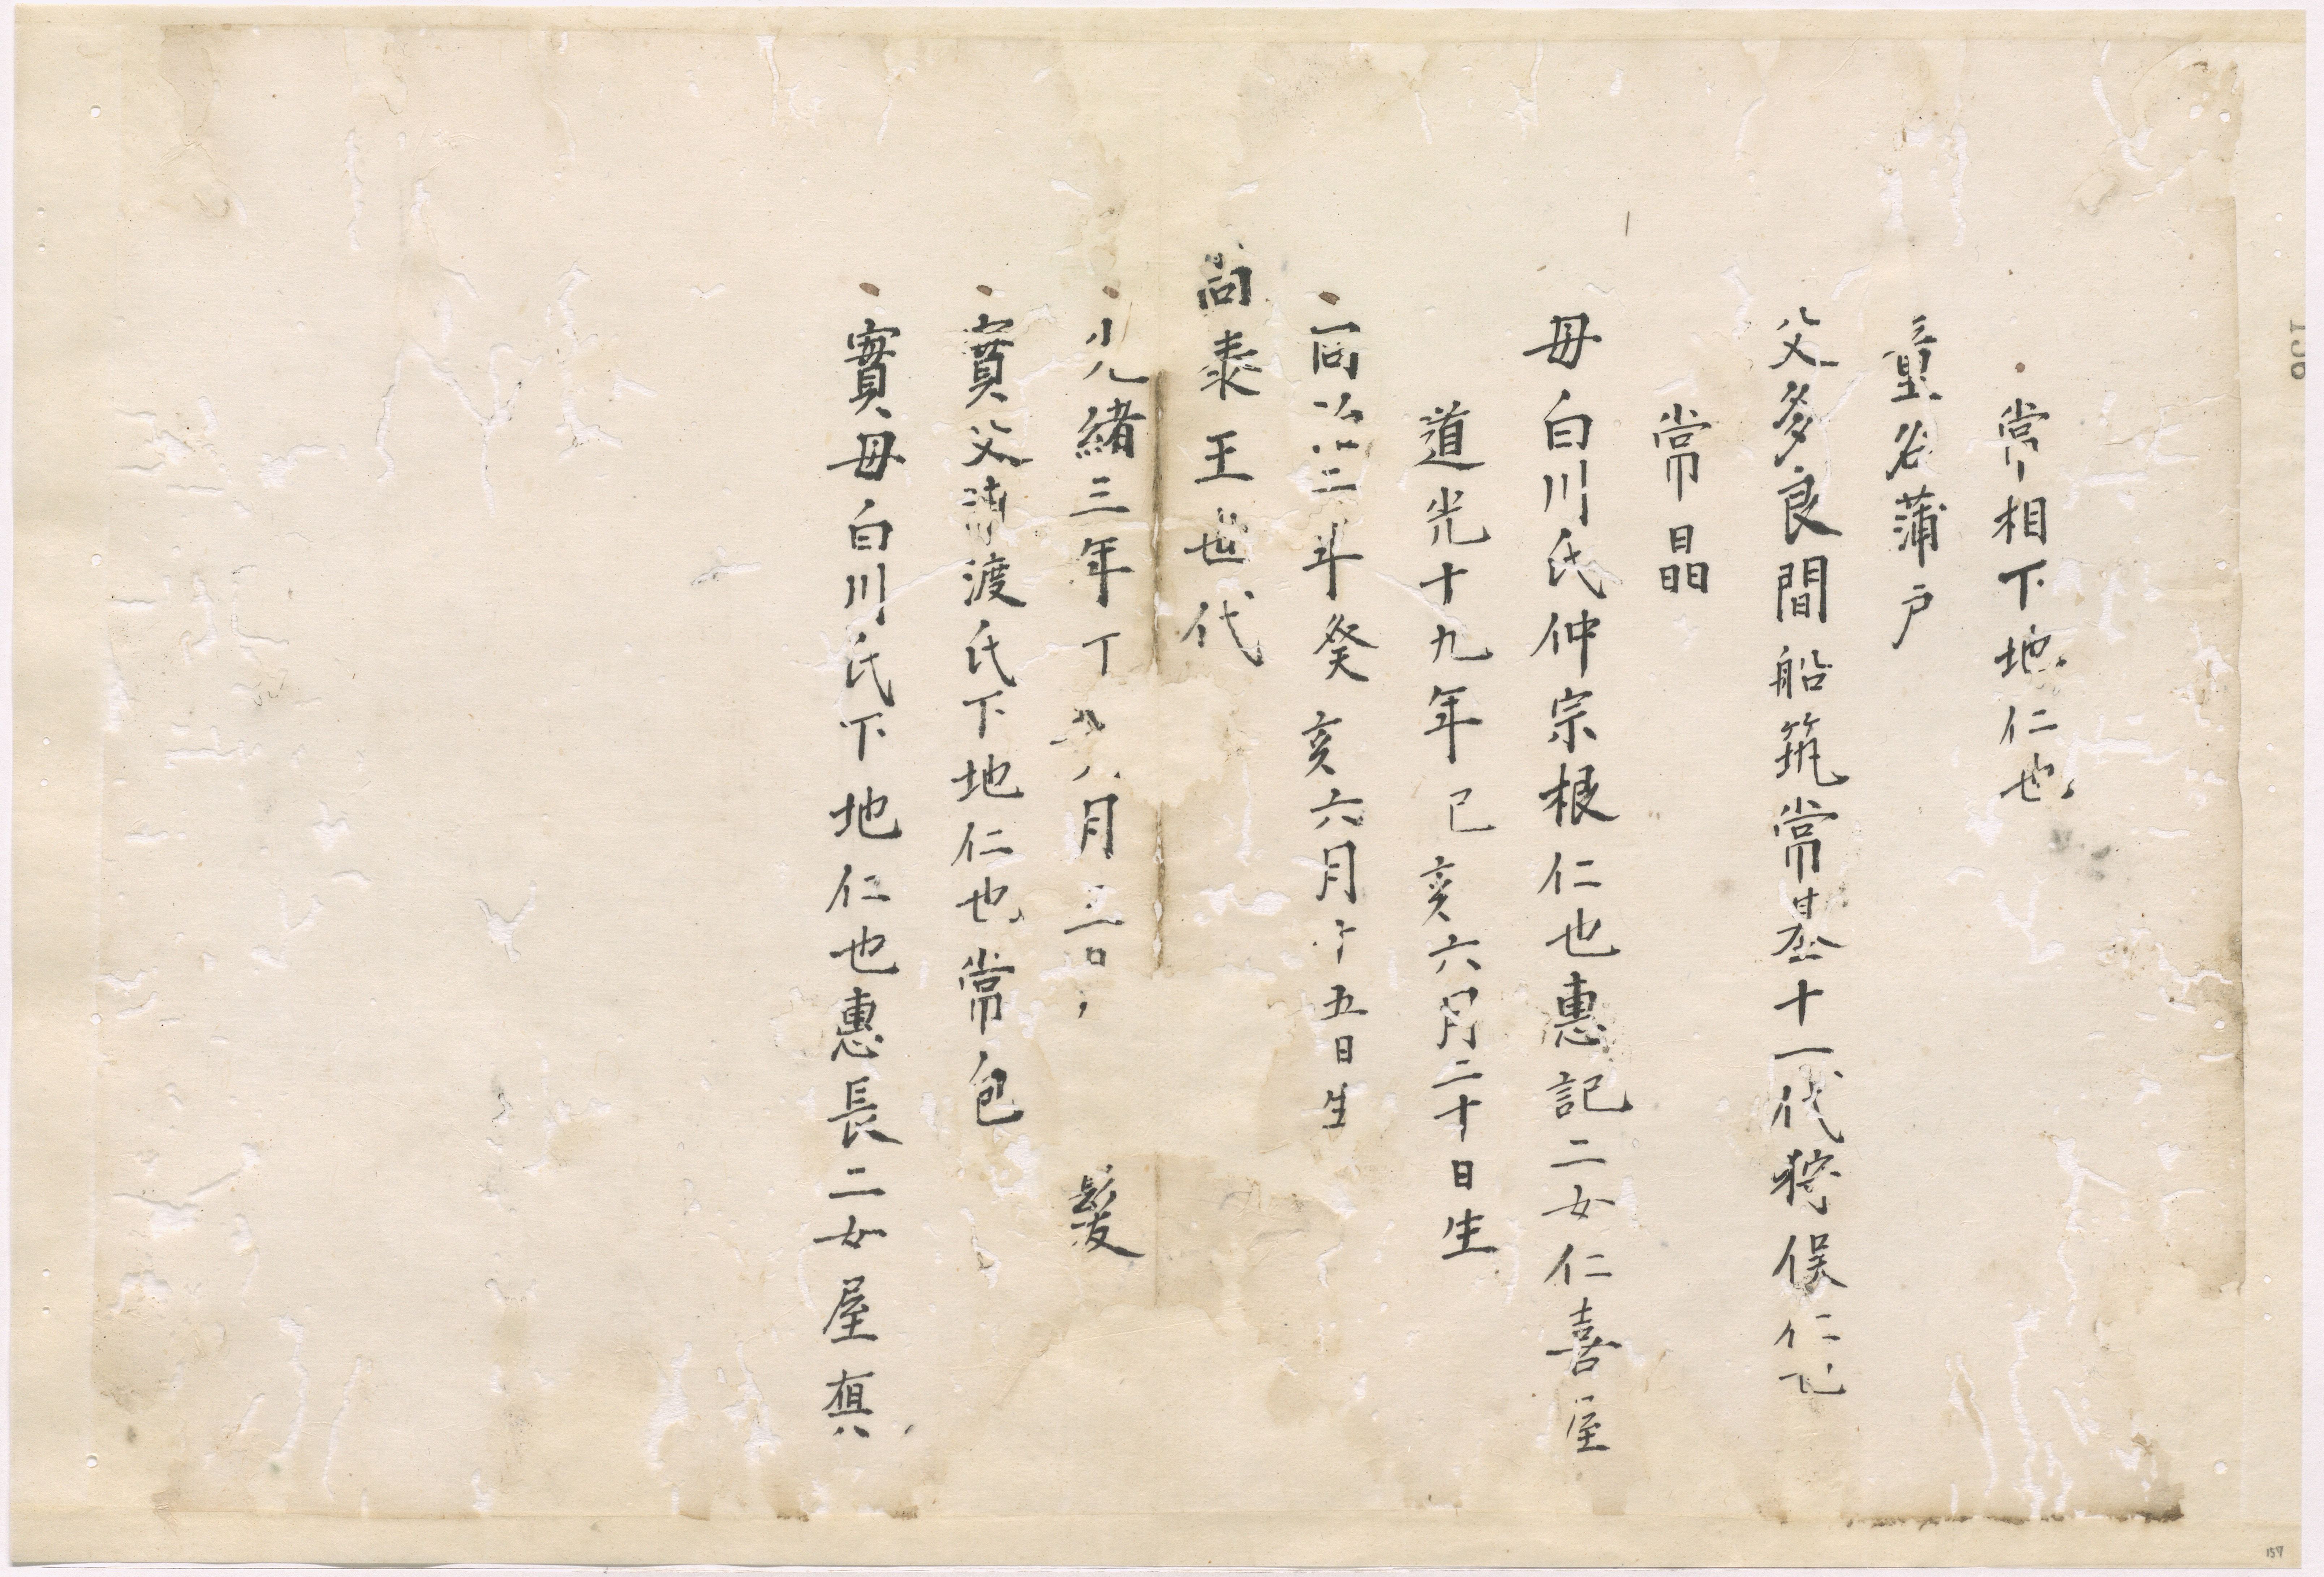 常相下地仁也
童名蒲戸
父多良間船筑常基十一代狩俣仁也
常晶
母白川氏仲宗根仁也惠記二女仁喜屋
道光十九年己亥六月二十日生
同治二年癸亥六月十五日生
尚泰王世代
光緒三年丁 八月三日 髪
實父湳渡氏下地仁也常包
實母白川氏下地仁也惠長二女屋真
136
157